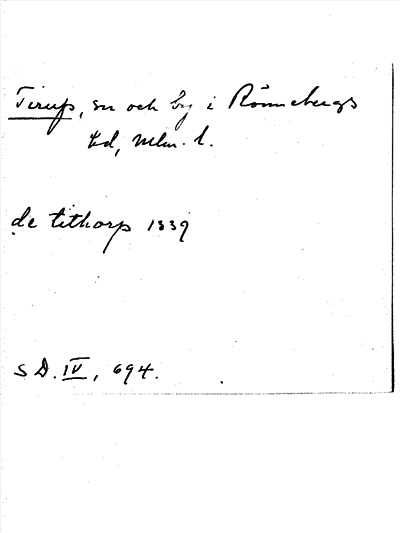 Tirup, sn och by i Rönnebergs
hd, Mlm. l.
de tithorp 1339
S D. IV, 694.